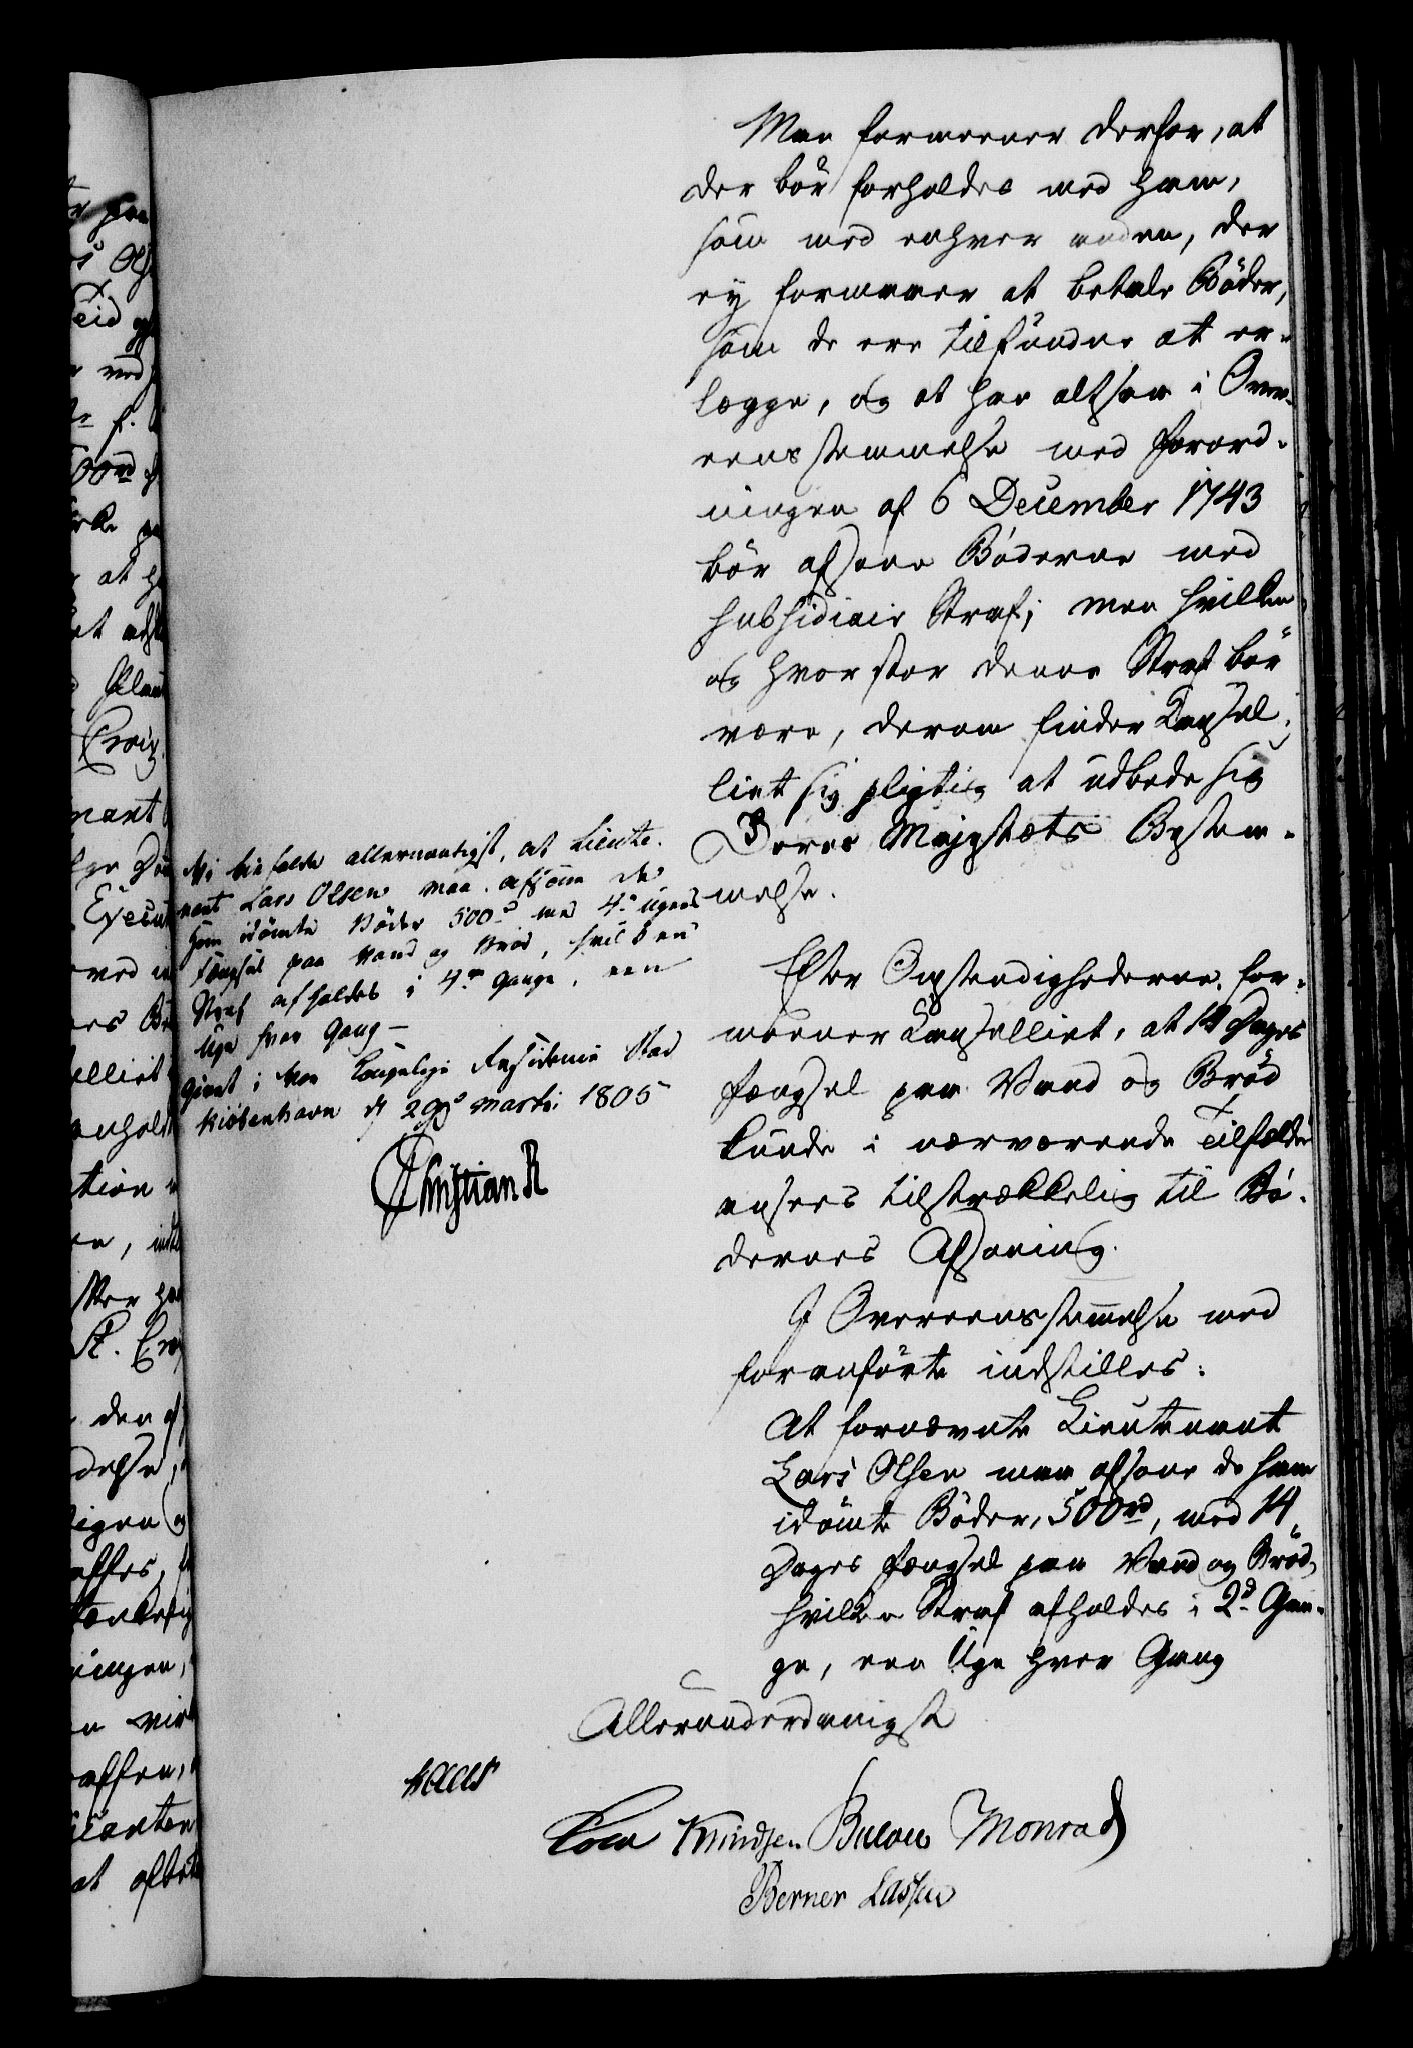 Man formeener derfor, at
der bör forholdes med ham,
som med enhver anden, der
ey formaaer at betale Böder,
som de ere tilfundne at er-
lægge, og at han altsaa i Over-
eensstemmelse med Forord-
ningen af 6 December 1743
bör afsone Böderne med
subsidiair Straf; men hvilken
og hvor stor denne Straf bör
være, derom finder Cancel-
liet sig pligtig at udbede sig
Deres Majestæts Bestem-
melse.
Efter Omstændighederne for-
meener Cancelliet, at 14 Dages
Fængsel paa Vand og Bröd
kunde i nærværende Tilfælde
ansees tilstrækkelig til Bö-
dernes Afsoning.
I Overeensstemmelse med
foranförte indstilles:
At fornævnte Lieutenant
Lars Olsen maa afsone de ham
idömte Böder, 500rd, med 14
Dages Fængsel paa Vand og Bröd,
hvilken Straf afholdes i 2de Gan-
ge, een Uge hver Gang
Allerunderdanigst
Kaas
Cold Knudsen Bülow Monrad
Berner Lassen
Vi bifalde allernaadigst, at Lieute-
nant Lars Olsen maa afsone de
ham idömte Böder 500rd med 4re Ugers
Fængsel paa Vand og Bröd, hvilken
Straf afholdes i 4re Gange, een
Uge hver Gang –
Givet i Vor Kongelige Residence Stad
Kiöbenhavn d 29de Martii 1805
Christian R